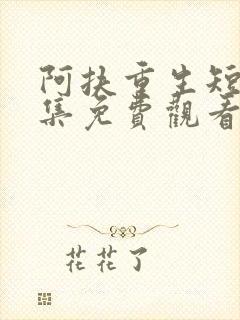 阿扶重生短
集免費觀看
花花了